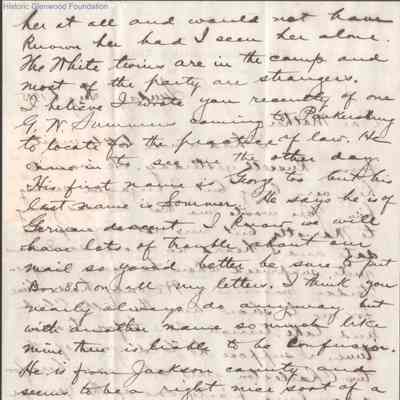 Historic Glenwood Foundation
her at all and would not have
Known her had I seen her alone.
The White twins are in the camp and
most of the party are strangers.
I believe I wrote you recently of one
G. W. Summers coming to Parkersburg
to locate for the practice of law. He
came in to see me the other day.
His first name is George too but his
last name is Sommer. He says he is of
German descent. I know we will
have lots of trouble about our
mail so you'd better be sure to put
Box 55 on all my letters. I think you
nearly always do anyway but
with another name so much like
mine there is liable to be confusion.
He is from Jackson county and
seems to be a right nice sort of a